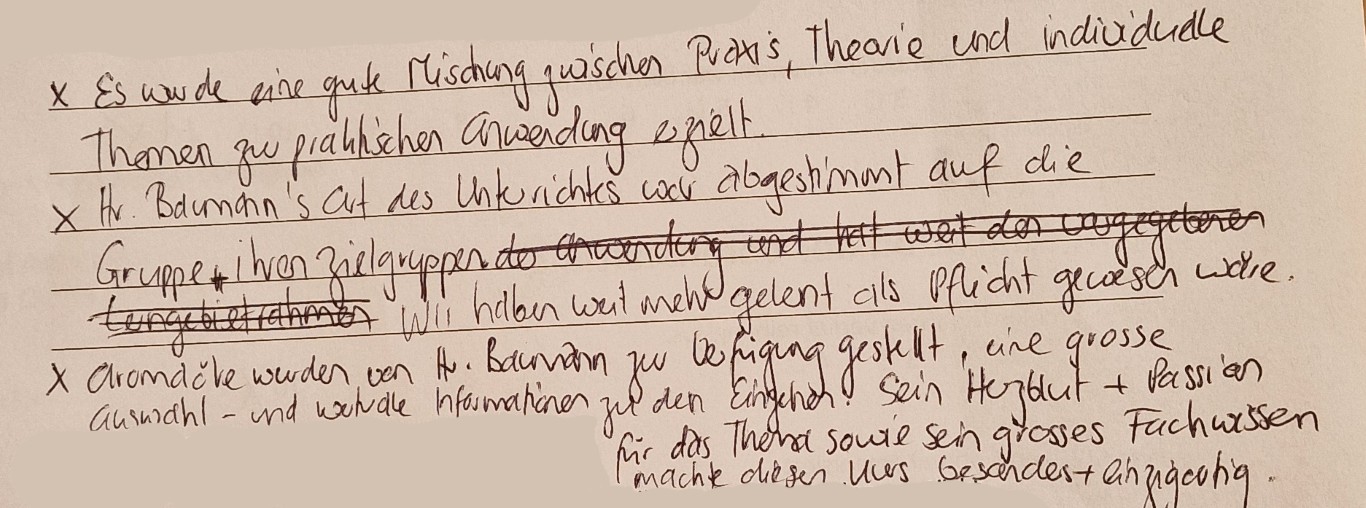 x Es wurde eine gute Mischung zwischen Praxis, Theorie und individuelle
Themen zur praktischen Anwendung erzielt.
x Hr. Baumann's Art des Unterrichtes war abgestimmt auf die
Gruppe + ihren Zielgruppen der Anwendung und hat weit den vorgegebenen
Wir haben weit mehr gelent als Pflicht gewesen wäre.
x Aromaöle wurden von Hr. Baumann zur Verfügung gestellt, eine grosse
Auswahl - und wertvolle Informationen zu den Einzelnen! Sein Herzblut + Passion
für das Thema sowie sein grosses Fachwissen
machte diesen Kurs besonders + einzigartig.